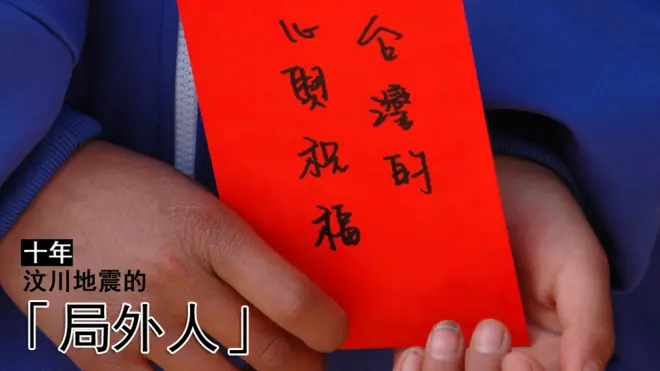 台灣的
心與祝福
十年
汶川地震的
「局外人」